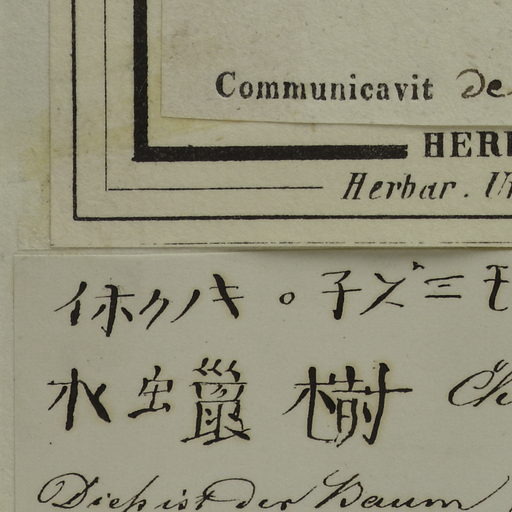 Communicavit de
HER
Herbar. U
イホタノキ 。 子ズミモ
水蠟樹 Ch
Dieß ist der Baum